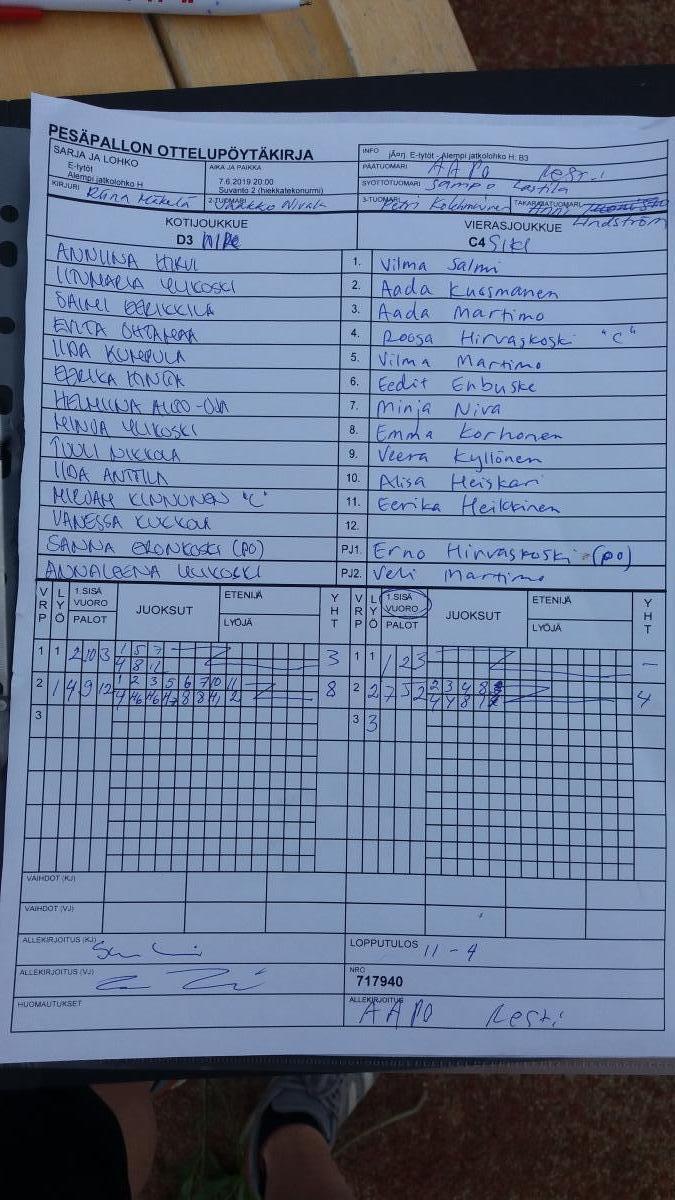 PESÄPALLON OTTELUPÖYTÄKIRJA
SARJA JA LOHKO
E-tytöt
Alempi jatkolohko H
AIKA JA PAIKKA
7.6.2019 20:00
Suvanto 2 (hiekkatekonurmi)
INFO
jÄrj. E-tytöt - Alempi jatkolohko H: B3
PÄÄTUOMARI AAPO Resti
SYÖTTÖTUOMARI Sampo Lastila
KIRJURI Riina Mäkelä
2-TUOMARI Nivala
3-TUOMARI Petri Kolehmainen
TAKARAJATUOMARI Anni Lindström
KOTIJOUKKUE
D3 NiPe
VIERASJOUKKUE
C4 SiKi
ANNIINA
1. Vilma Salmi
YLIKOSKI
2. Aada Kuosmanen
SAIMI EERIKKILÄ
3. Aada Martimo
EVITA OHTAMAA
4. Roosa Hirvaskoski "C"
IIDA KUMPULA
5. Vilma Martimo
EERIKA HINTSA
6. Eedit Enbuske
HELMIINA ALCO-OJA
7. Minja Niva
MINDA YLIKOSKI
8. Emma Korhonen
TUULI NIKKOLA
9. Veera Kyllönen
IIDA ANTTILA
10. Alisa Heiskari
MIRJAM KINNUNEN "C"
11. Eerika Heikkinen
VANESSA KUKKOLA
12.
SANNA ERONKOSKI (PO)
PJ1. Erno Hirvaskoski (po)
ANNALEENA YLIKOSKI
PJ2. Veli Martimo
VRP LYÖ 1.SISÄ VUORO PALOT JUOKSUT ETENIJÄ LYÖJÄ YHT
VRP LYÖ 1.SISÄ VUORO PALOT JUOKSUT ETENIJÄ LYÖJÄ YHT
1 1 2 10 3 1 5 7 3
4 8 11
1 1 1 2 3 –
2 1 4 9 12 1 2 3 5 6 7 10 11 8
2 2 7 5 2 2 3 4 8 4
3
3 3
VAIHDOT (KJ)
VAIHDOT (VJ)
ALLEKIRJOITUS (KJ)
LOPPUTULOS 11 - 4
ALLEKIRJOITUS (VJ)
NRO
717940
HUOMAUTUKSET
ALLEKIRJOITUS
AAPO Resti